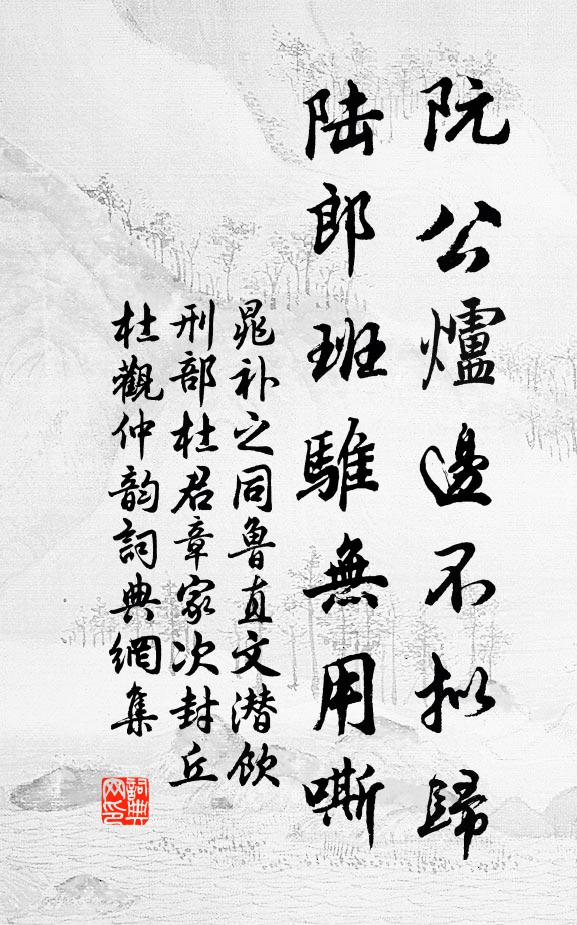 阮公爐邊不拟歸
陆郎班騅無用嘶
晁补之同魯直文潜飲
刑部杜君章家次封丘
杜觀仲韵詞典網集
詞典
网印